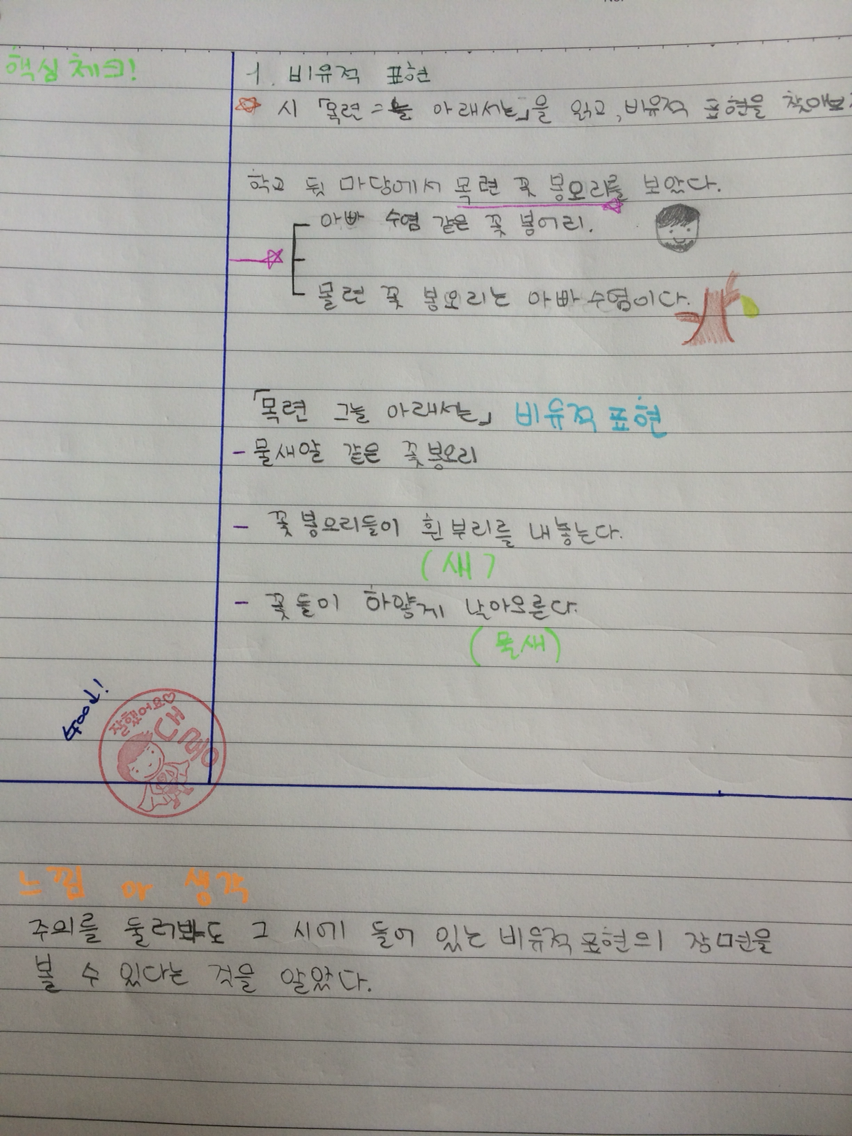 핵심 체크!
1. 비유적 표현
시 「목련 그늘 아래서는」을 읽고, 비유적 표현을 찾아보
학교 뒷 마당에서 목련 꽃 봉오리를 보았다.
아빠 수염 같은 꽃 봉어리.
몰련 꽃 봉오리는 아빠 수염이다.
「목련 그늘 아래서는」 비유적 표현
- 물새알 같은 꽃봉오리
- 꽃 봉오리들이 흰 부리를 내놓는다.
(새)
- 꽃들이 하얗게 날아오른다.
(물새)
잘했어요♡
느낌 생각
주의를 둘러봐도 그 시에 들어 있는 비유적 표현의 장면을
볼 수 있다는 것을 알았다.